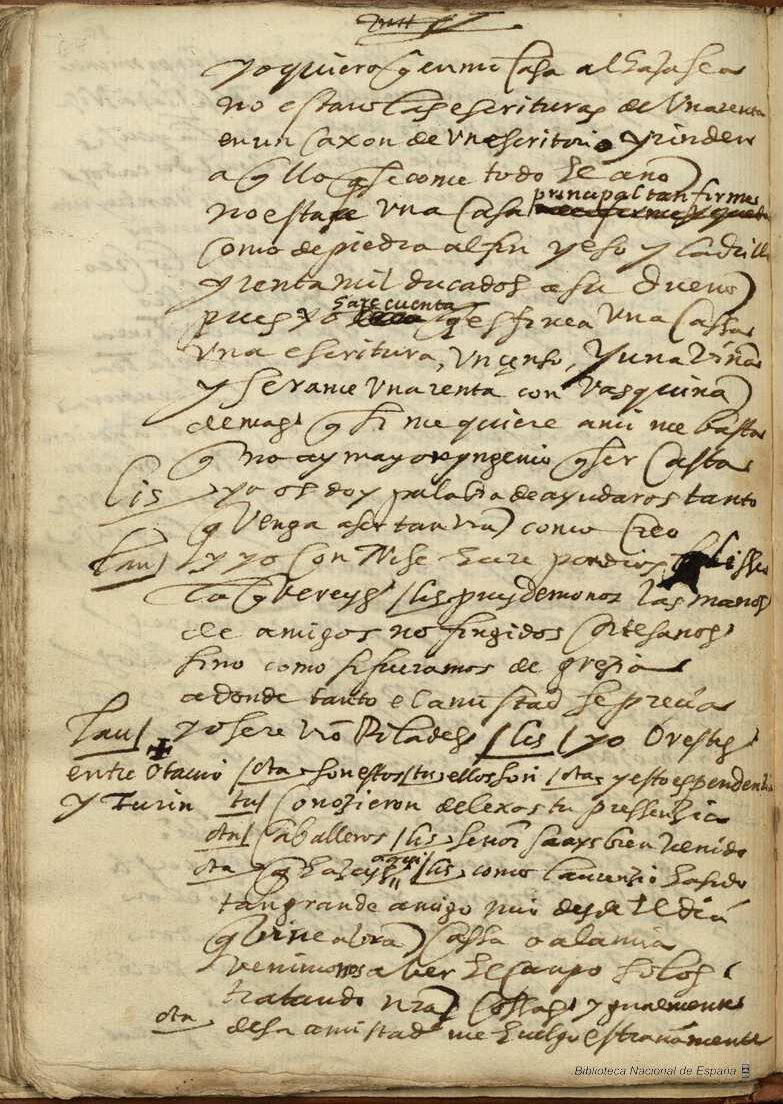 yo quiero q en mi casa alhajasea
no estan las escrituras de Una renta
en un caxon de Un escritorio y rinden
aqllo q se come todo el ano
no esta Una casa principal tan firme
como de piedra al fin yeso y ladrillo
y renta mil ducados a su dueno
pues yo hare cuenta q es finca Una cassa
Una escritura, Un censo, y una Vina
y serame Una renta con Vasquina
demas q si me quiere a mi me basta
q no ay mayor yngenio q ser casta
lis yo os doy palabra de ayudaros tanto
q Venga a ser tan vra como creo
lau y yo con Nise hare por dios lisseo
lo q Vereys lis pues demonos las manos
de amigos no fingidos cortesanos
sino como si fueramos de grezia
adonde tanto el amistad se precia
lau yo sere vro Pilades lis yo Orestes
entre Otauio ota son estos tu ellos son ota y esto es pendenzia
y Turin tu conozieron de lexos tu pressenzia
ota caballeros lis senor seays bien Venido
ota q hazeys aqui lis como laurenzio ha sido
tan grande amigo mio desde el dia
q Vine a Vra cassa o a la mia
venimonos a ber el canpo solos
tratando nras cossas ygualmente
ota desa amistad me huelgo estranamente
Biblioteca Nacional de España